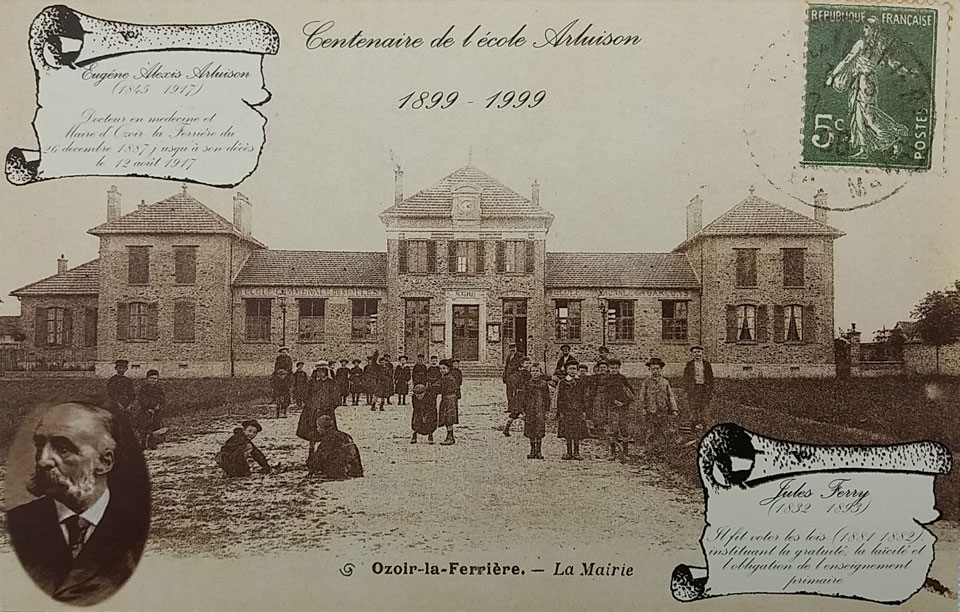 Centenaire de l'école Arluison
1899 - 1999
Eugène Alexis Arluison
(1845 1917)
Docteur en medecine et
Maire d'Ozoir la Ferrière du
26 decembre 1887 jusqu'à son décès
le 12 août 1917
RÉPUBLIQUE FRANÇAISE
5c
POSTES
MAIRIE
Jules Ferry
(1832 1893)
Il fit voter les lois (1881 1882),
instituant la gratuité, la laïcité et
l'obligation de l'enseignement
primaire
Ozoir-la-Ferrière. — La Mairie